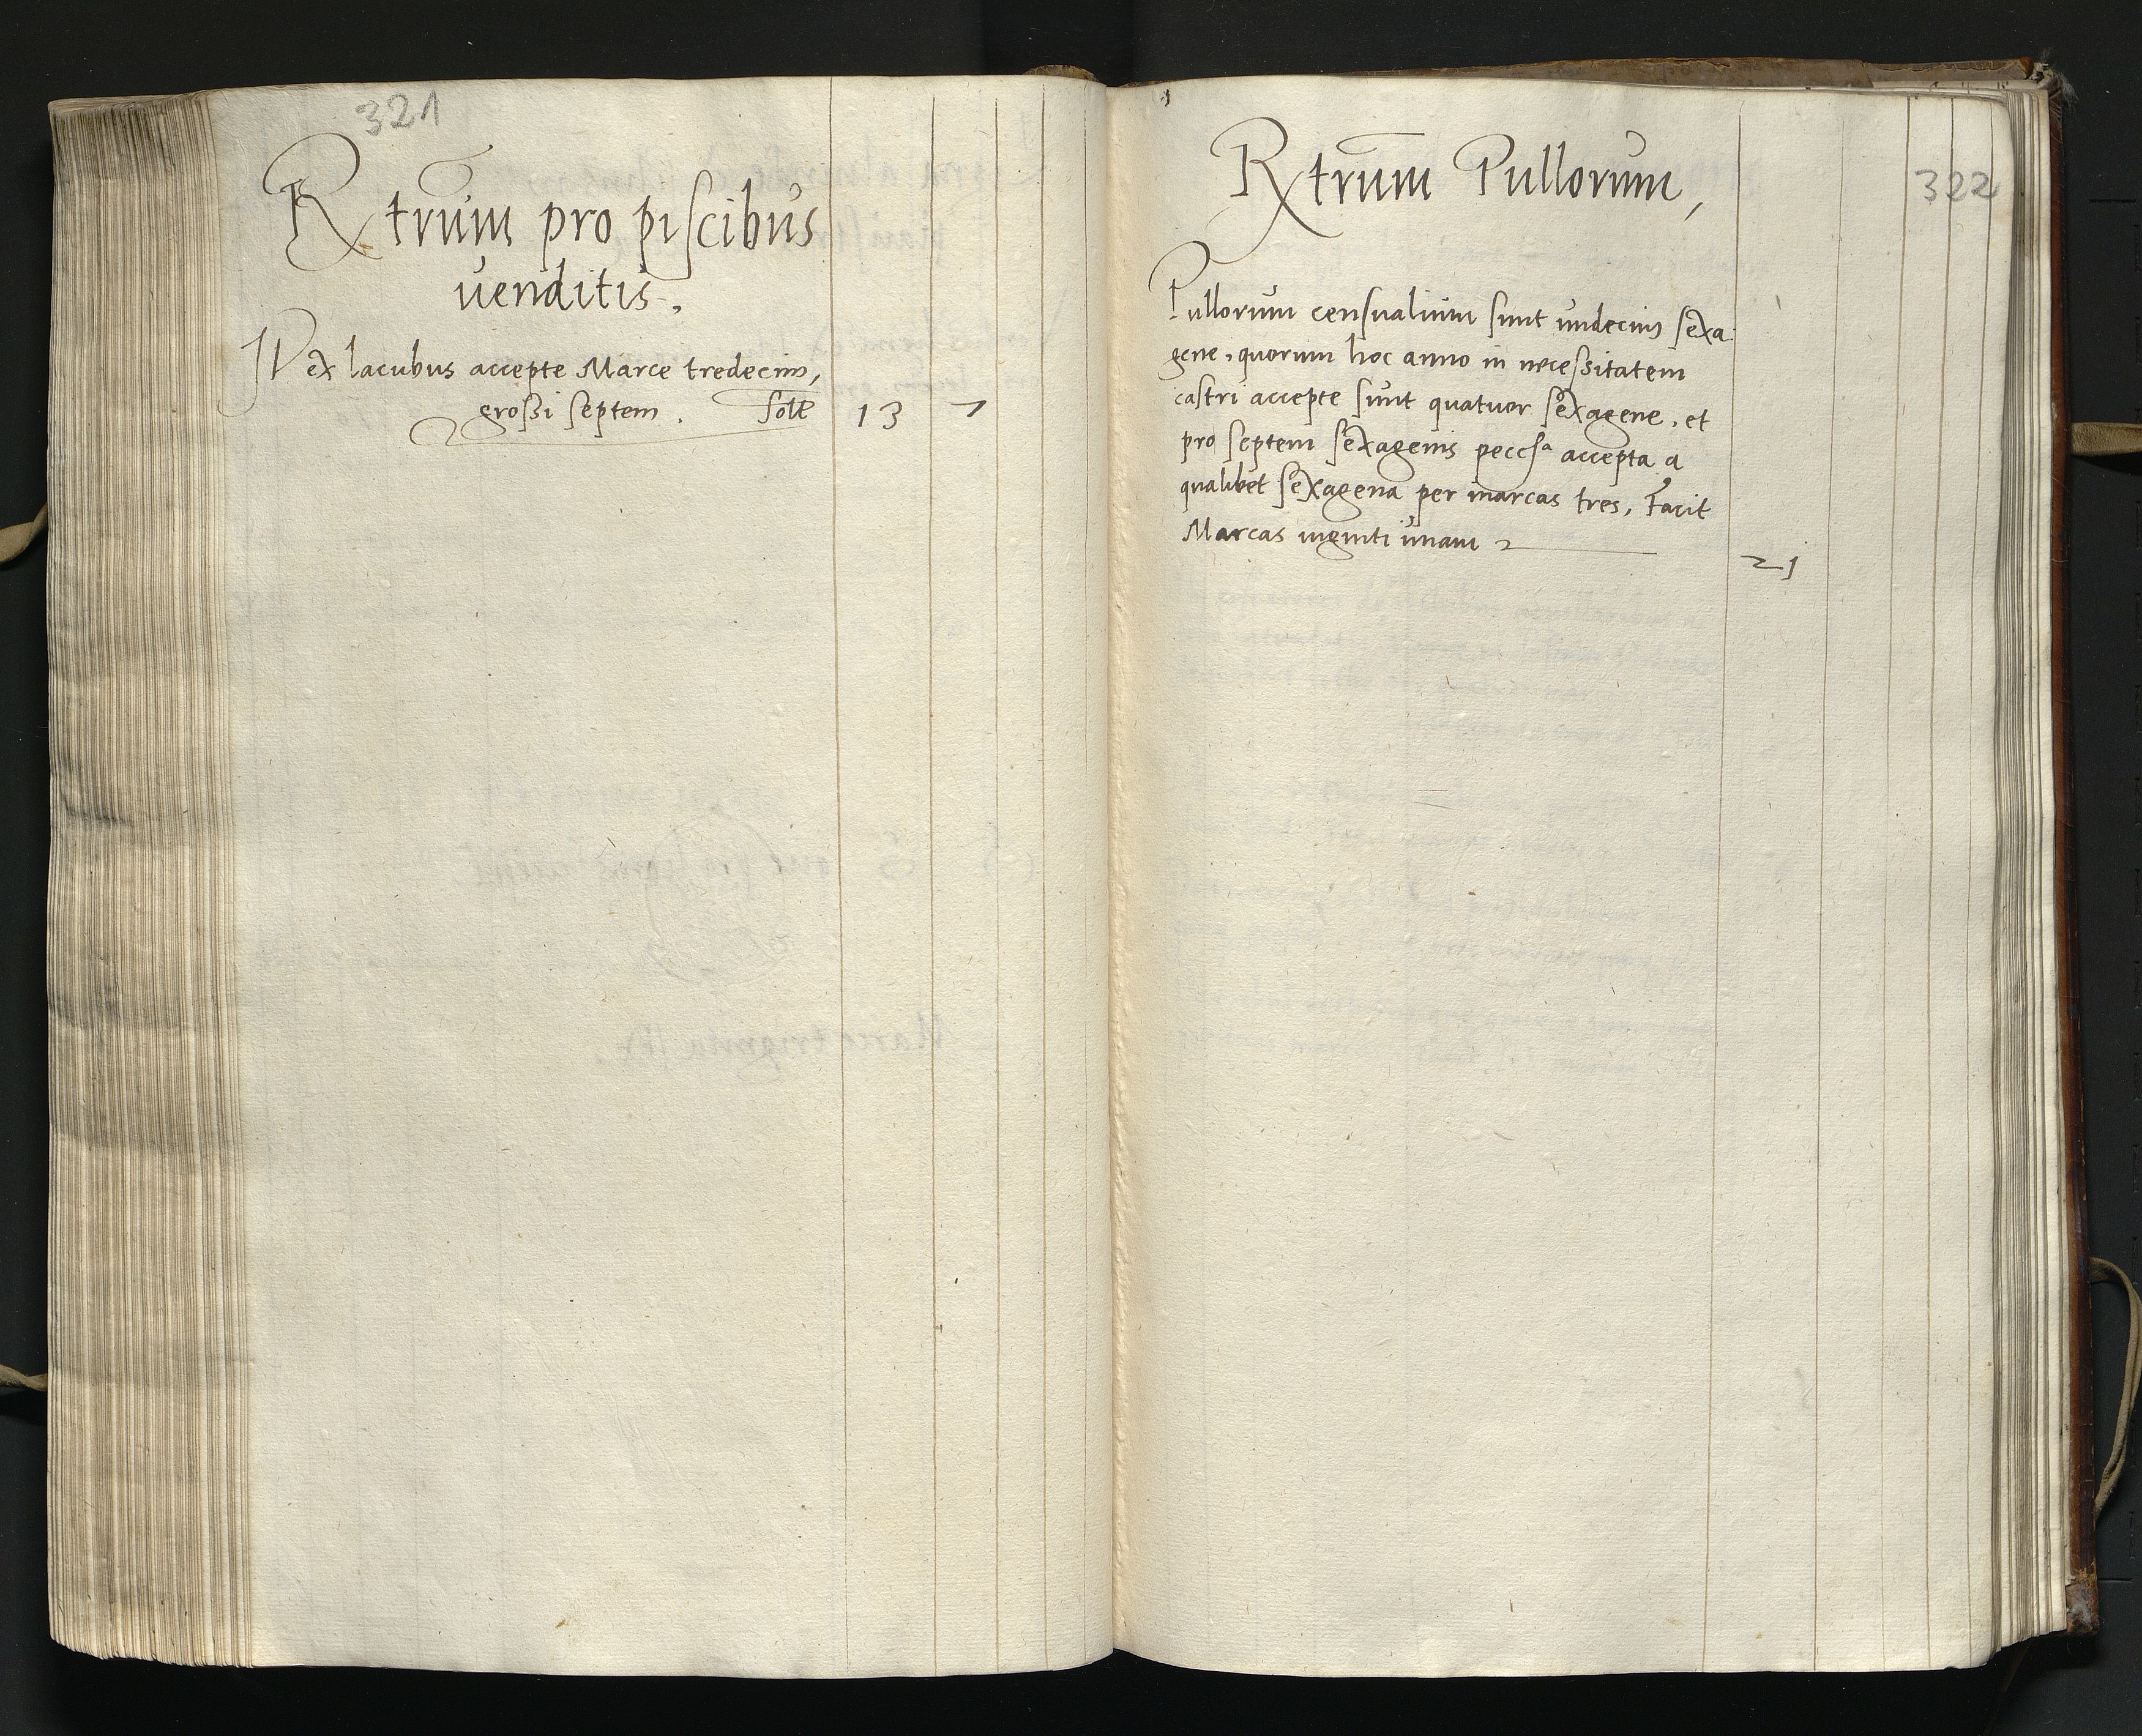 321
Rtrum pro piscibus
venditis.
Pro ex lacubus accepte Marce tredecim,
grossi septem. Solt 13 7
322
Rtrum Pullorum,
Pullorum censualium sunt undecim sexa
gene, quorum hoc anno in necessitatem
castri accepte sunt quatuor sexagene, et
pro septem sexagenis pecca accepta a
qualibet sexagena per marcas tres, Facit
Marcas viginti unam 21